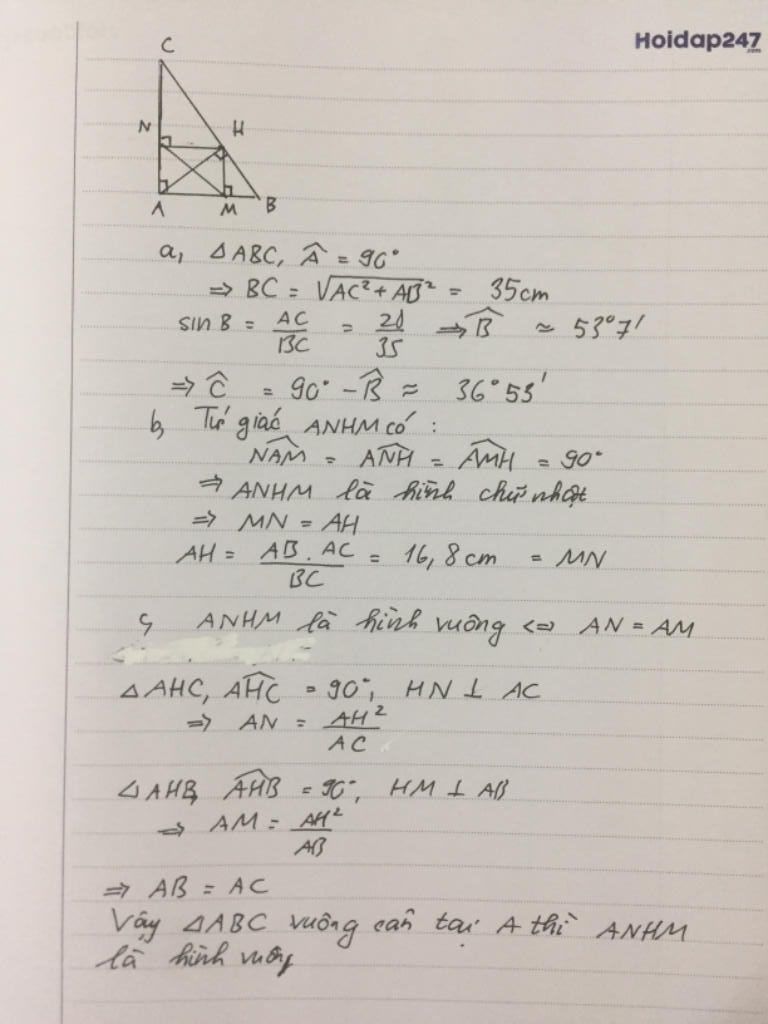 Hoidap247
.com
C
N
H
A
M
B
a, △ABC, Â = 90°
⇒ BC = √(AC² + AB²) = 35cm
sin B = AC/BC = 28/35 ⇒ B̂ ≈ 53°7'
⇒ Ĉ = 90° - B̂ ≈ 36°53'
b, Tứ giác ANHM có :
NAM̂ = ANĤ = AMĤ = 90°
⇒ ANHM là hình chữ nhật
⇒ MN = AH
AH = AB . AC/BC = 16,8cm = MN
c, ANHM là hình vuông ⇔ AN = AM
△AHC, AHĈ = 90°, HN ⊥ AC
⇒ AN = AH²/AC
△AHB, AHB̂ = 90°, HM ⊥ AB
⇒ AM = AH²/AB
⇒ AB = AC
Vậy △ABC vuông cân tại A thì ANHM
là hình vuông